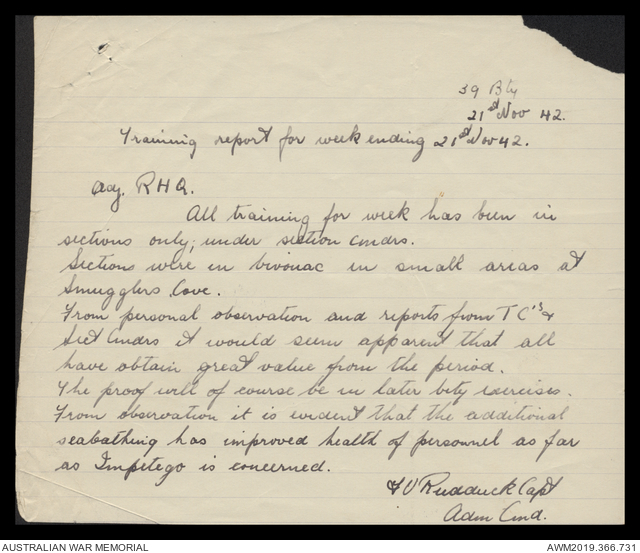 39 Bty
21st Nov 42.
Training report for week ending 21st Nov 42.
Adj. RHQ.
All training for week has been in
sections only; under section cmdrs.
Sections were in bivouac in small areas at
Smugglers Cove.
From personal observation and reports from TC's &
Sect Cmdrs it would seem apparent that all
have obtain great value from the period.
The proof will of course be in later bty exercises.
From observation it is evident that the additional
seabathing has improved health of personnel as far
as Impetego is concerned.
Rudduck Capt
Adm Cmd.
AUSTRALIAN WAR MEMORIAL
AWM2019.366.731